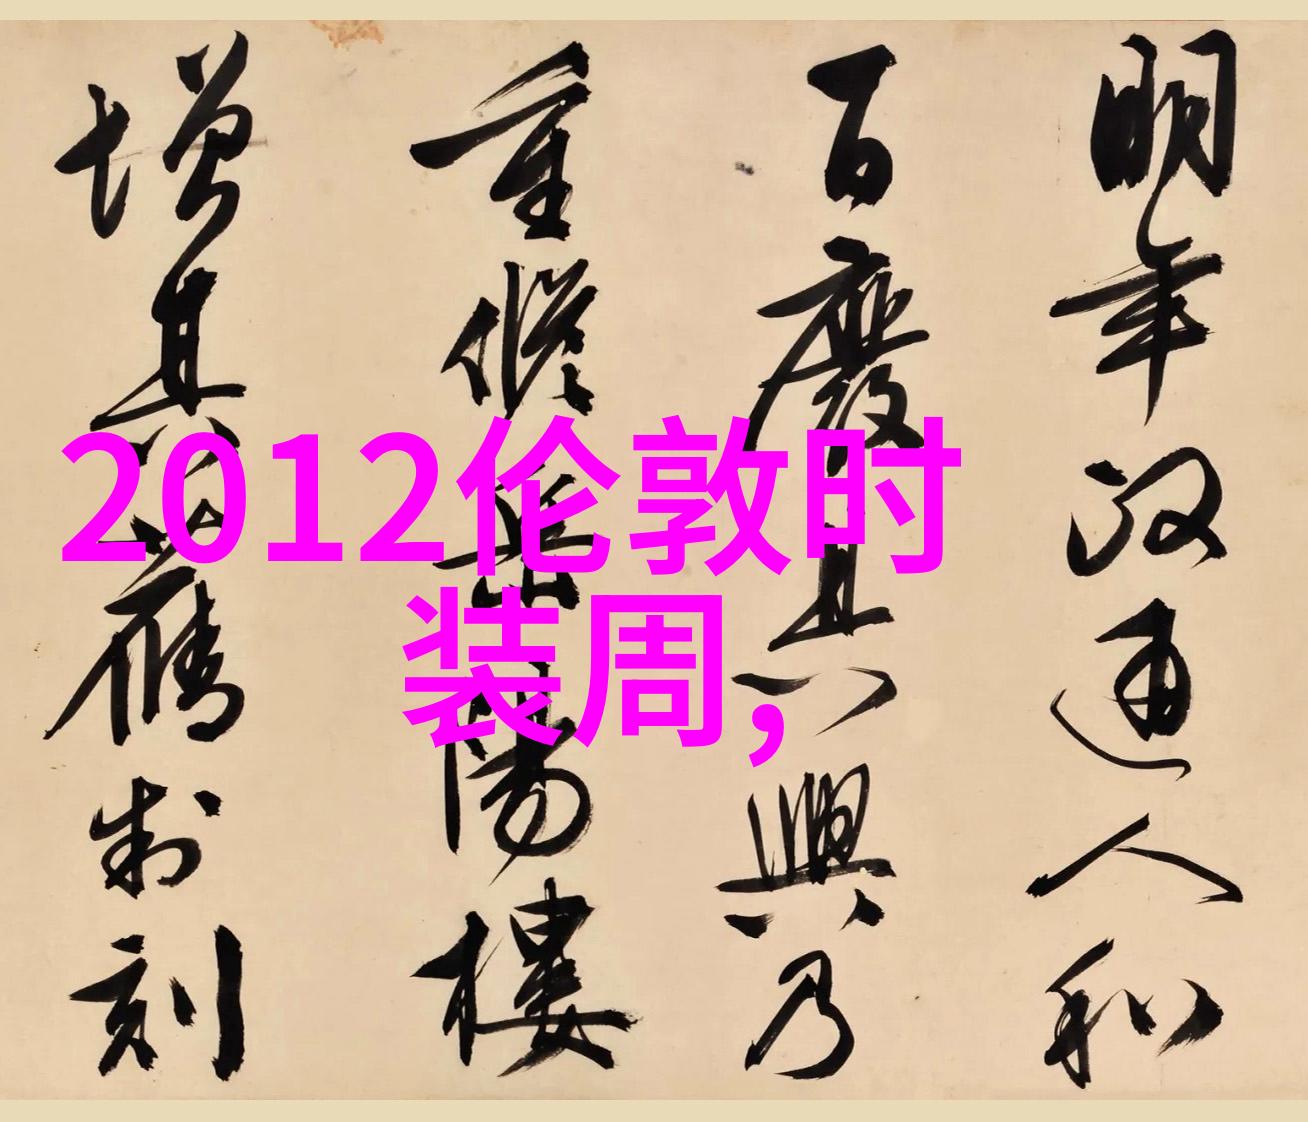 明年政通人和
百廢具興乃
重修岳陽樓
增其舊制刻
2012伦敦时
装周,